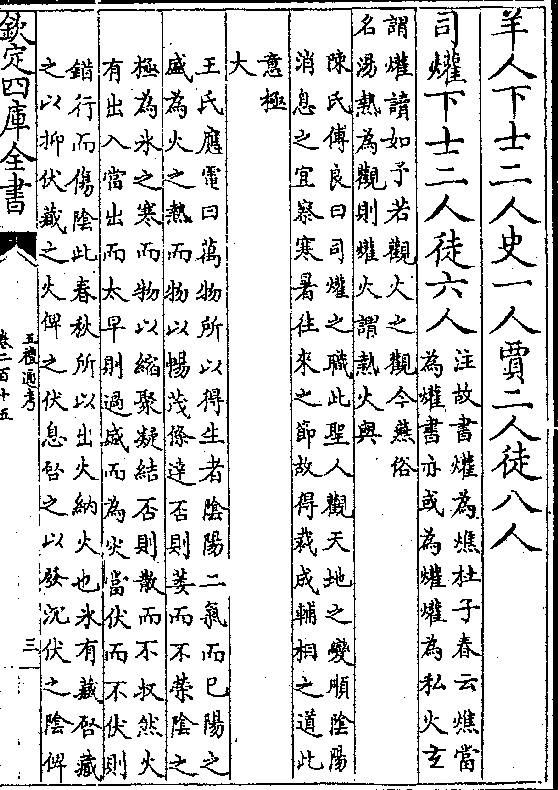 羊人下士二人史一人賈二人徒八人
司爟下士二人徒六人
注故書爟為燋杜子春云燋當
為爟書亦或為爟爟為私火玄
謂爟讀如予若觀火之觀今燕俗
名湯熱為觀則爟火謂熱火與
陳氏傅良曰司爟之職此聖人觀天地之變順陰陽
消息之宜察寒暑往來之節故得裁成輔相之道此
意極
大
王氏應電曰萬物所以得生者陰陽二氣而已陽之
盛為火之熱而物以暢茂條達否則萎而不榮陰之
極為氷之寒而物以縮聚凝結否則散而不収然火
有出入當出而太早則過盛而為灾當伏而不伏則
錯行而傷陰此春秋所以出火納火也氷有藏啓藏
之以抑伏藏之火俾之伏息啓之以發沉伏之陰俾
欽定四庫全書
五禮通考
卷二百十五
三